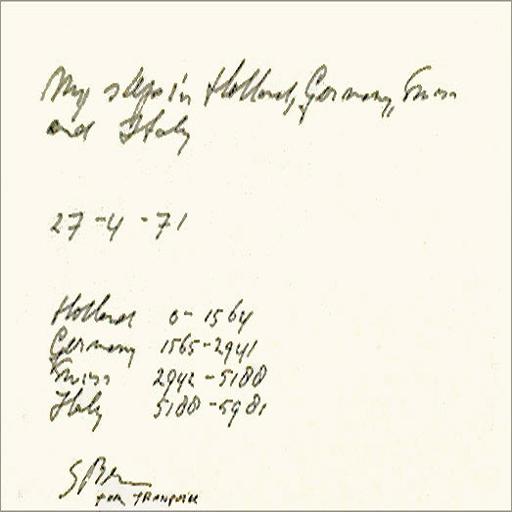 My steps in Holland, Germany, Swiss
and Italy
27-4-71
Holland 0-1564
Germany 1565-2941
Swiss 2942-5188
Italy 5188-5981
for Françoise